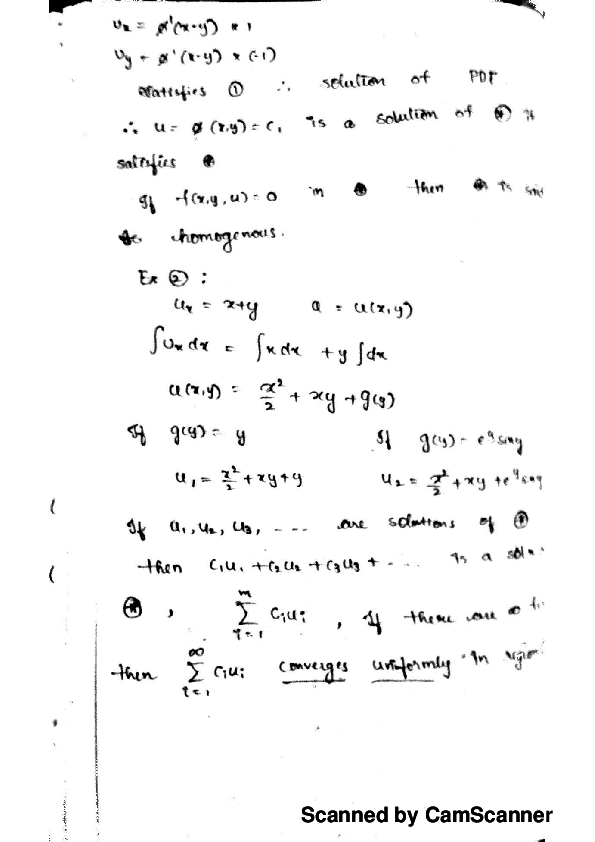 uₓ = ø'(x-y) * 1
u_y = ø'(x-y) * (-1)
satisfies ① ∴ solution of PDF
∴ u = ø(x,y) = C₁ is a solution of ④ it
satisfies
If f(x,y,u) = 0 in then is
homogenous.
Ex ② :
uₓ = x+y u = u(x,y)
∫uₓ dx = ∫x dx + y ∫dx
u(x,y) = x²/2 + xy + g(y)
If g(y) = y If g(y) = e^y siny
u₁ = x²/2 + xy + y u₂ = x²/2 + xy + e^y siny
If u₁, u₂, u₃, ---- are solutions of
then c₁u₁ + c₂u₂ + c₃u₃ + - - . is a soln
, m Σ i=1 cᵢuᵢ , If there are ∞
then ∞ Σ i=1 cᵢuᵢ converges uniformly in region
Scanned by CamScanner